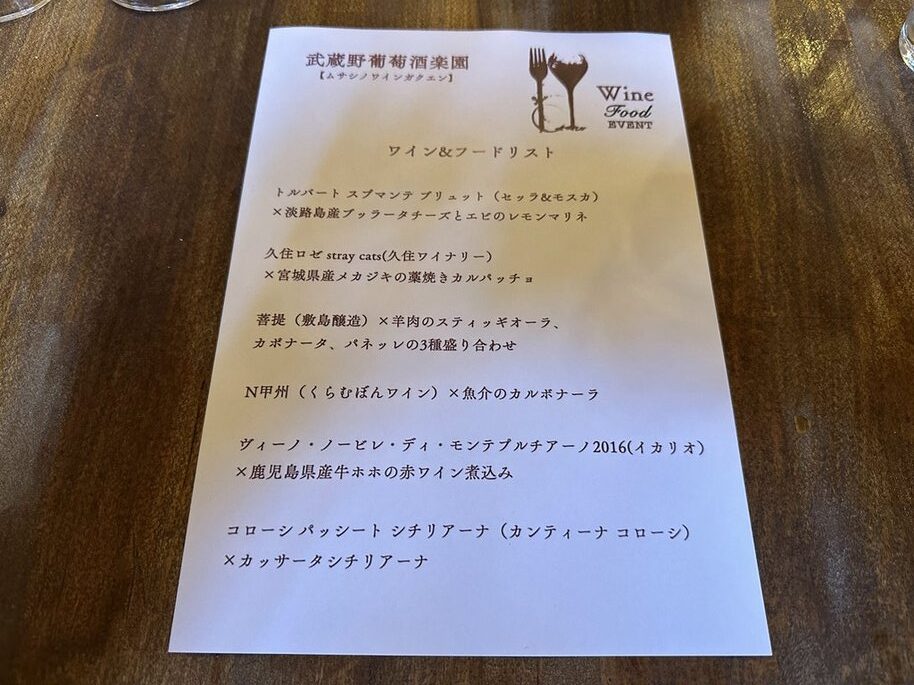 武蔵野葡萄酒楽園
【ムサシノワインガクエン】
Wine
Food
EVENT
ワイン&フードリスト
トルバート スプマンテ ブリュット（セッラ&モスカ）
×淡路島産ブッラータチーズとエビのレモンマリネ
久住ロゼ stray cats(久住ワイナリー)
×宮城県産メカジキの藁焼きカルパッチョ
菩提（敷島醸造）×羊肉のスティッギオーラ、
カポナータ、パネッレの3種盛り合わせ
N甲州（くらむぼんワイン）×魚介のカルボナーラ
ヴィーノ・ノービレ・ディ・モンテプルチアーノ2016(イカリオ)
×鹿児島県産牛ホホの赤ワイン煮込み
コローシ パッシート シチリアーナ（カンティーナ コローシ）
×カッサータシチリアーナ